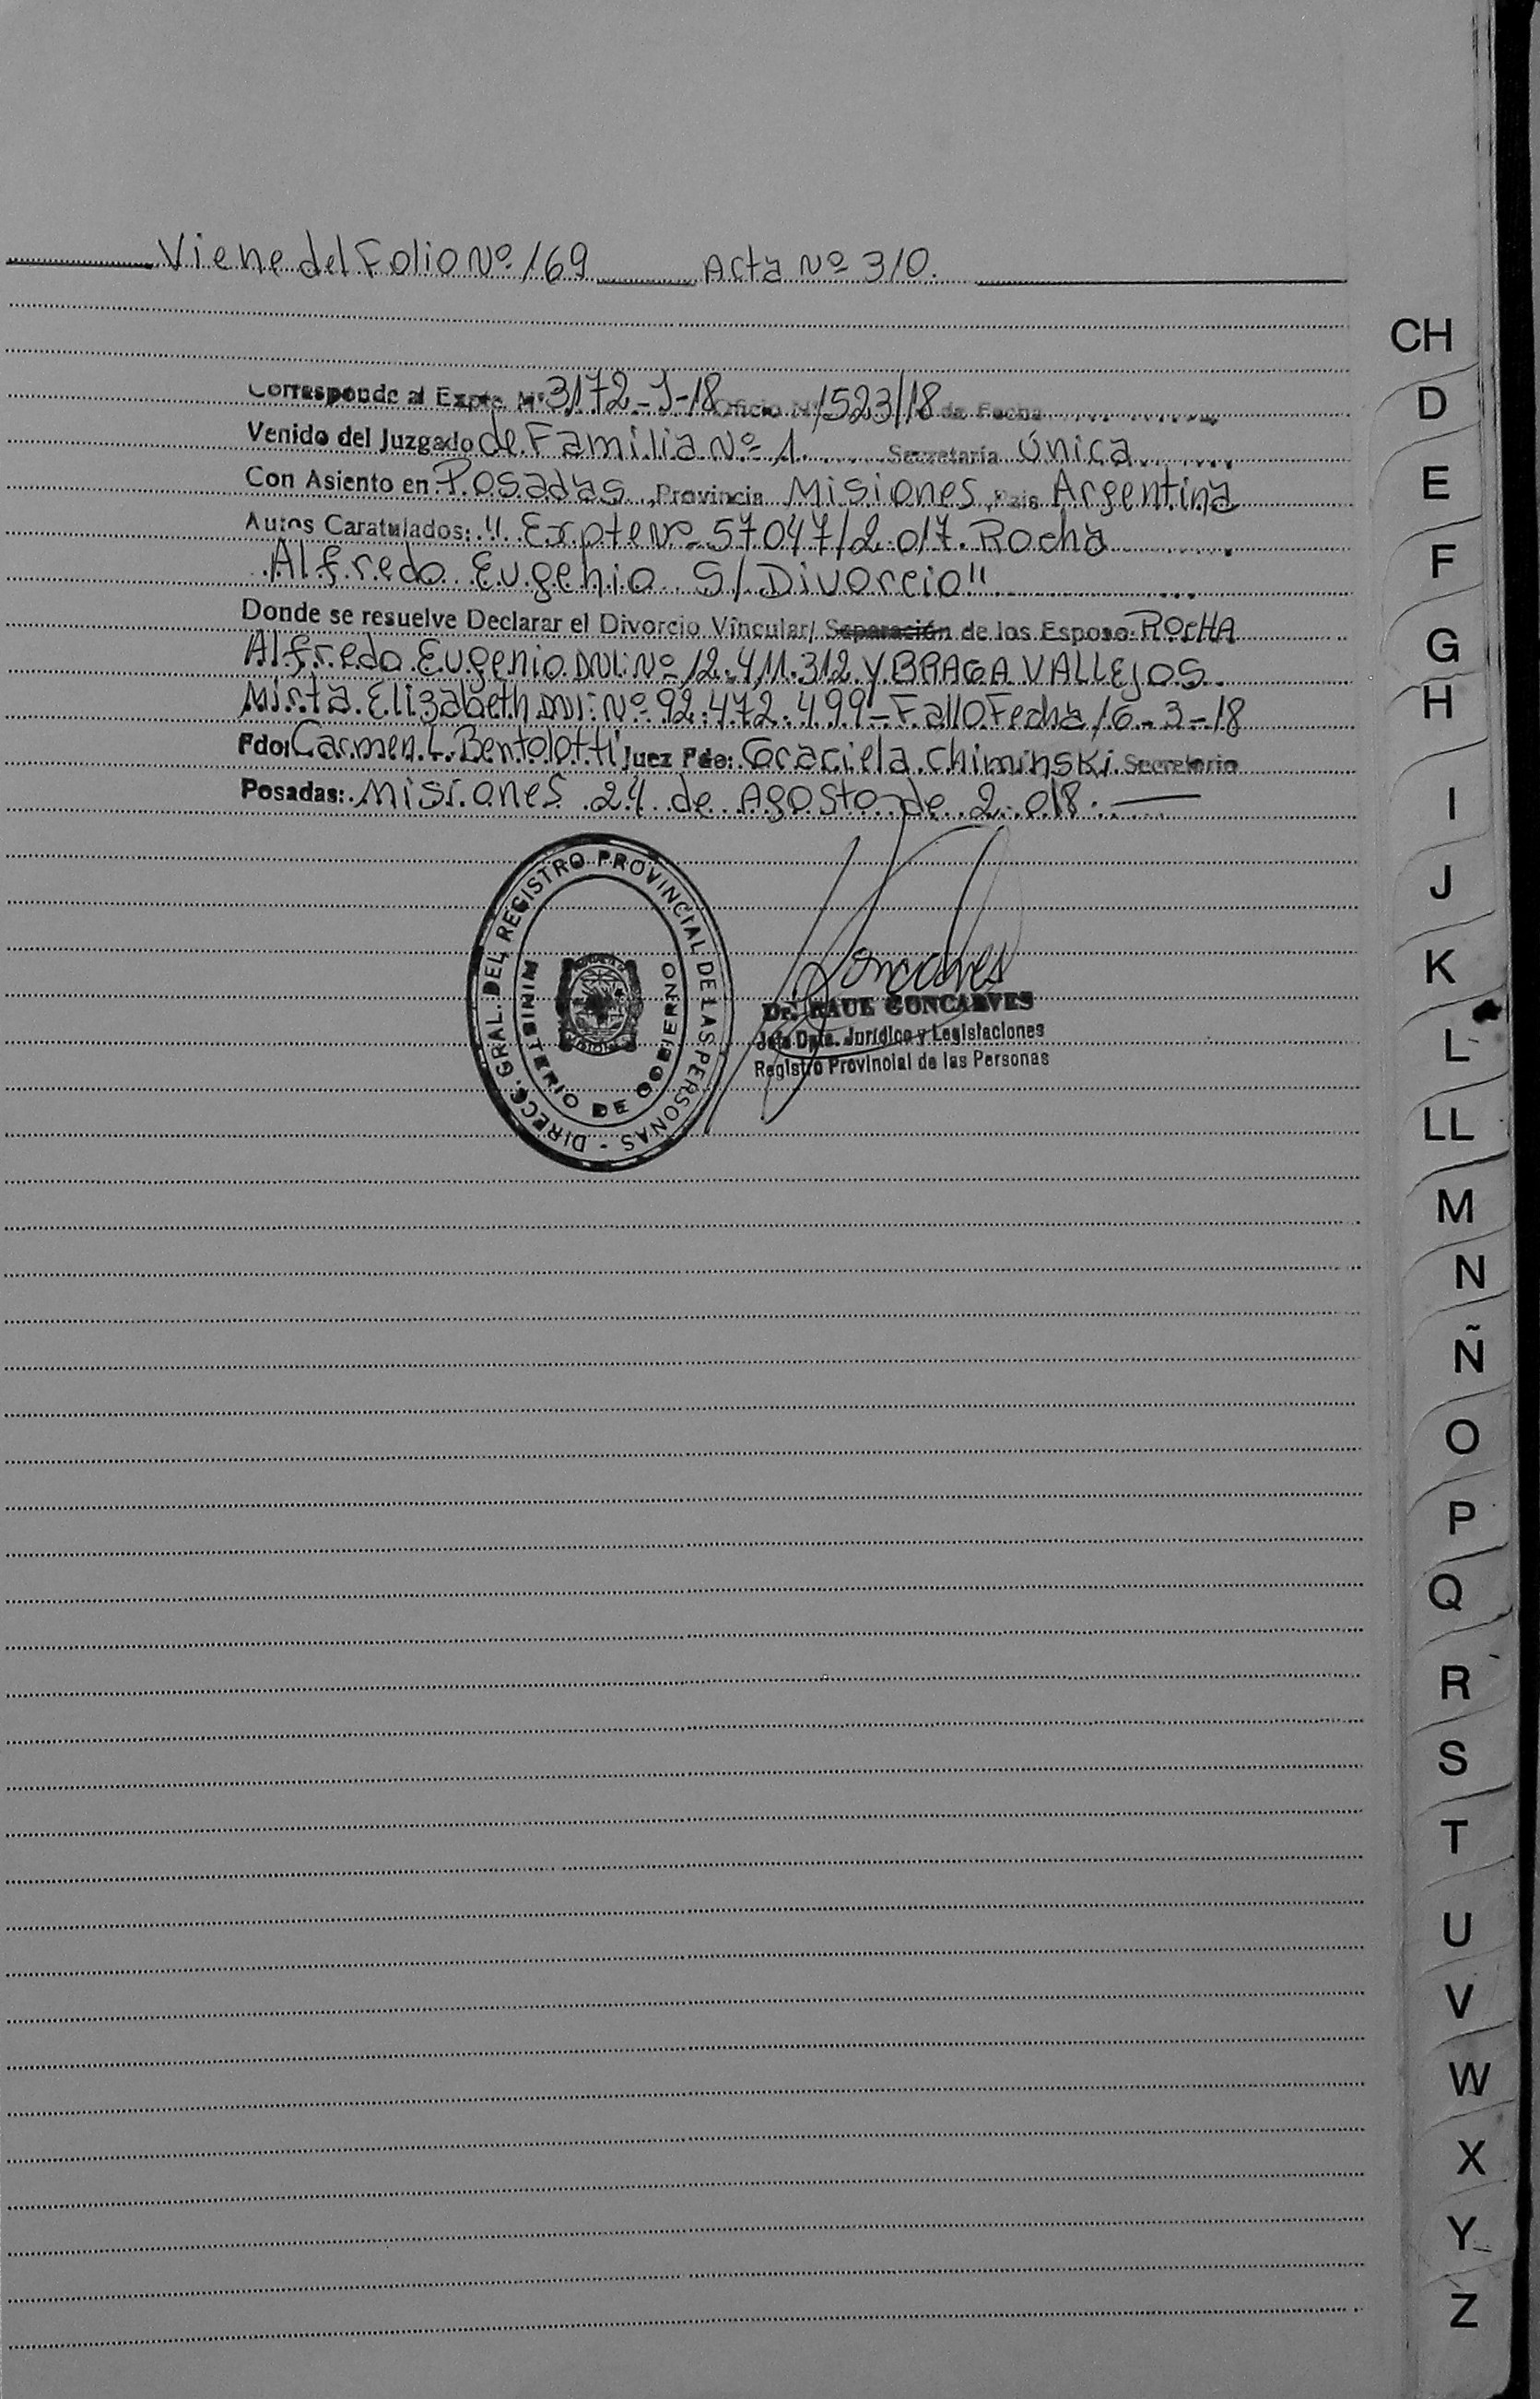 Viene del Folio Nº 169 Acta Nº 310.
Corresponde al Expte. Nº 3172-J-18 Oficio Nº 1523/18 de Fecha
Venido del Juzgado de Familia Nº 1. Secretaría Única
Con Asiento en Posadas, Provincia Misiones, País Argentina
Autos Caratulados: "Expte Nº 57047/2.017. Rocha
Alfredo Eugenio S/Divorcio"
Donde se resuelve Declarar el Divorcio Vincular/ Separación de los Esposo: ROCHA
Alfredo Eugenio DNI: Nº 12.411.312 Y BRAGA VALLEJOS
Mirta Elizabeth DNI: Nº 92.472.499 - Fallo Fecha 16-3-18
Fdo: Carmen L. Bentolotti Juez Fdo: Graciela Chiminski Secretario
Posadas: Misiones 24 de Agosto de 2.018.
DIRECC. GRAL. DEL REGISTRO PROVINCIAL DE LAS PERSONAS -
MINISTERIO DE GOBIERNO
Dr. RAUL GONCALVES
Jefe Dpto. Jurídico y Legislaciones
Registro Provincial de las Personas
CH
D
E
F
G
H
I
J
K
L
LL
M
N
Ñ
O
P
Q
R
S
T
U
V
W
X
Y
Z